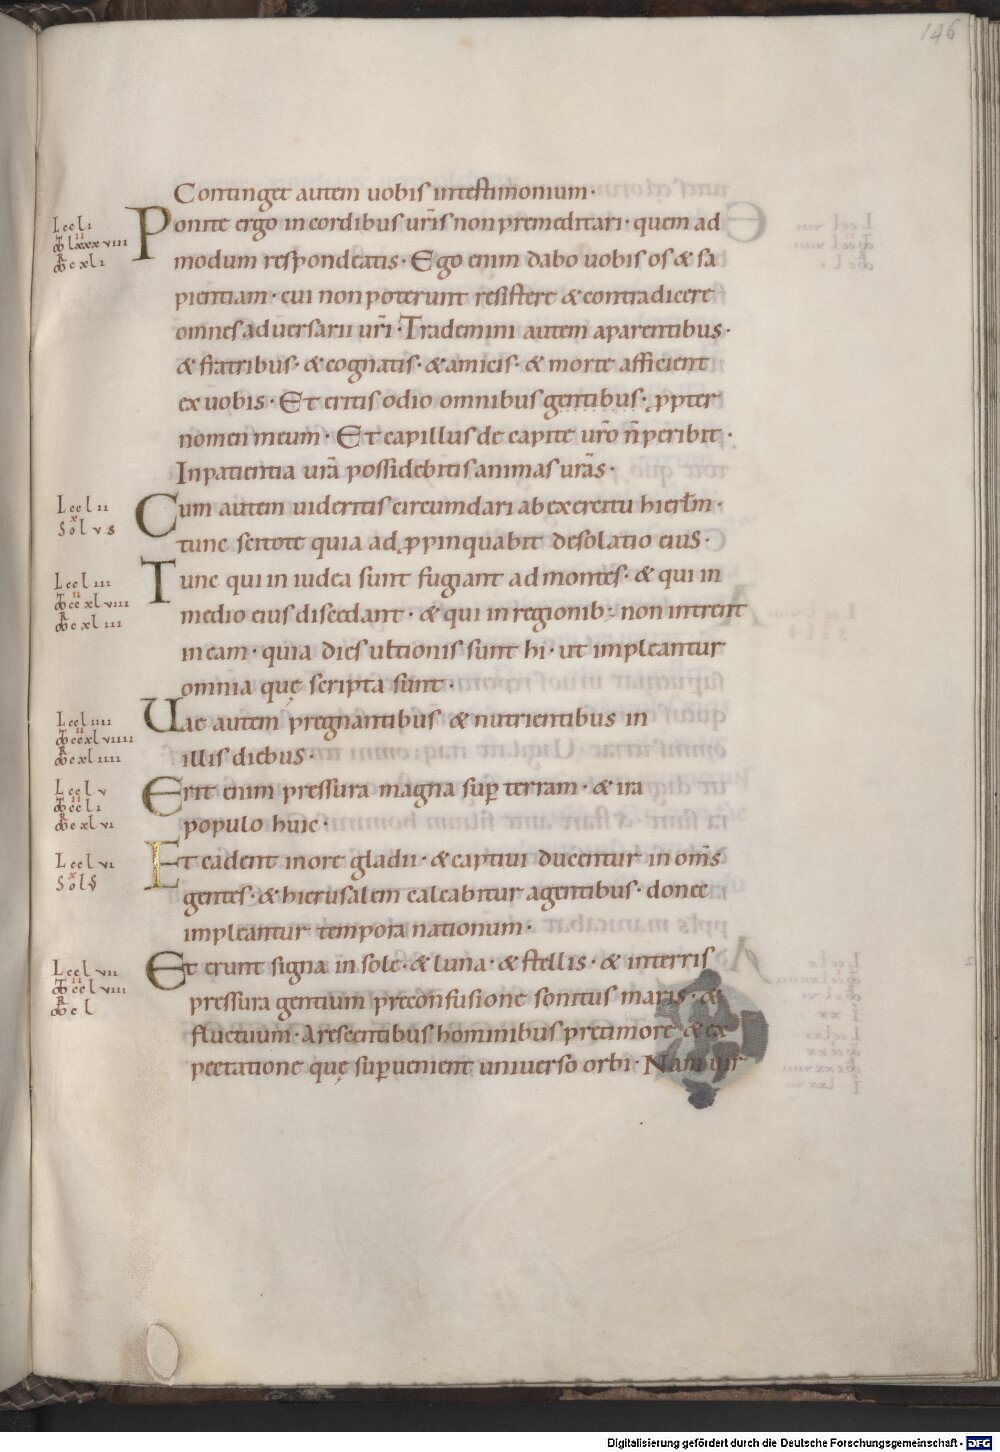 146
Continget autem uobis intestimonium·
Ponite ergo incordibus ur̄is non premeditari· quem ad
modum respondeatis· Ego enim dabo uobis os & sa
pientiam· cui non poterunt resistere & contradicere
omnes aduersarii ur̄i· Trademini autem aparentibus·
& fratribus· & cognatis· & amicis· & morte afficient
ex uobis· Et eritis odio omnibus gentibus· ꝓpter
nomen meum· Et capillus de capite ur̄o n̄ peribit·
Inpatientia ur̄a possidebitis animas ur̄as·
Cum autem uideritis circumdari abexercitu hierl̄m·
tunc scitote quia adꝓpinquabit desolatio eius·
Tunc qui in iudea sunt fugiant ad montes· & qui in
medio eius discedant· & qui in regionib; non intrent
in eam· quia dies ultionis sunt hi· ut impleantur
omnia quę scripta sunt·
Uae autem pregnantibus & nutrientibus in
illis diebus·
Erit enim pressura magna suꝑ terram· & ira
populo huic·
Et cadent in ore gladii· & captiui ducentur in om̄s
gentes· & hierusalem calcabitur agentibus· donec
impleantur tempora nationum·
Et erunt signa in sole· & luna· & stellis· & interris
pressura gentium preconfusione sonitus maris· &
fluctuum· Arescentibus hominibus pretimore & ex
pectatione quę suꝑuenient uniuerso orbi· Nam uir
L ccl i
L ccl ii
L ccl iii
L ccl iiii
L ccl v
L ccl vi
L ccl vii
Digitalisierung gefördert durch die Deutsche Forschungsgemeinschaft - DFG